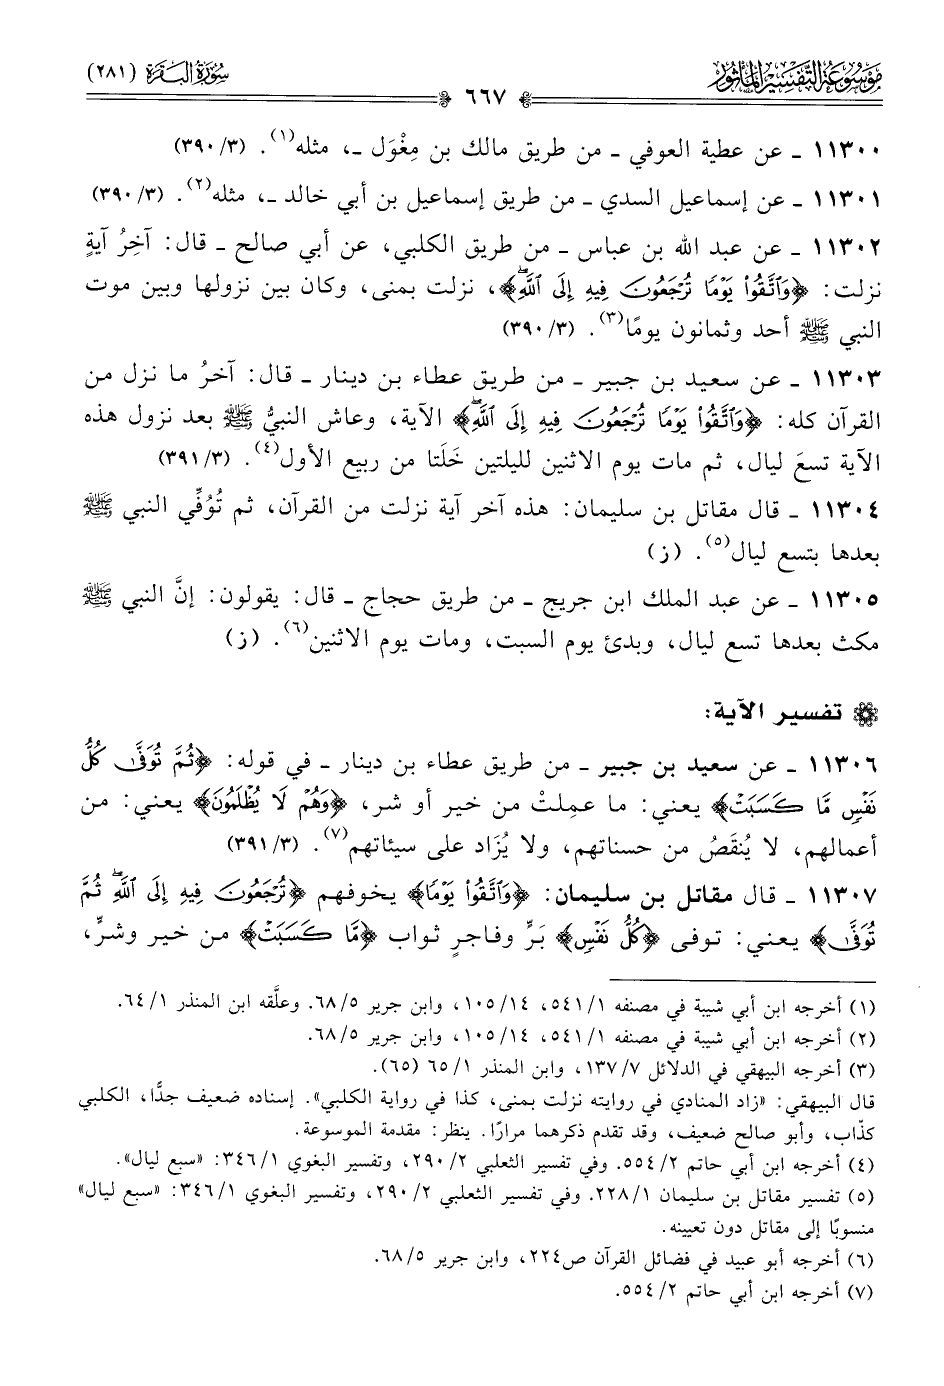 موسوعة التفسير المأثور
سورة البقرة (٢٨١)
٦٦٧
١١٣٠٠ ـ عن عطية العوفي ـ من طريق مالك بن مِغْوَل ـ، مثله(١). (٣/ ٣٩٠)
١١٣٠١ ـ عن إسماعيل السدي ـ من طريق إسماعيل بن أبي خالد ـ، مثله(٢). (٣/ ٣٩٠)
١١٣٠٢ ـ عن عبد الله بن عباس ـ من طريق الكلبي، عن أبي صالح ـ قال: آخِرُ آيةٍ
نزلت: ﴿وَٱتَّقُوا۟ يَوْمًا تُرْجَعُونَ فِيهِ إِلَى ٱللَّهِۖ﴾، نزلت بمنى، وكان بين نزولها وبين موت
النبي ﷺ أحد وثمانون يومًا(٣). (٣/ ٣٩٠)
١١٣٠٣ ـ عن سعيد بن جبير ـ من طريق عطاء بن دينار ـ قال: آخرُ ما نزل من
القرآن كله: ﴿وَٱتَّقُوا۟ يَوْمًا تُرْجَعُونَ فِيهِ إِلَى ٱللَّهِۖ﴾ الآية، وعاش النبيُّ ﷺ بعد نزول هذه
الآية تسعَ ليال، ثم مات يوم الاثنين لليلتين خَلَتا من ربيع الأول(٤). (٣/ ٣٩١)
١١٣٠٤ ـ قال مقاتل بن سليمان: هذه آخر آية نزلت من القرآن، ثم تُوُفِّي النبي ﷺ
بعدها بتسع ليال(٥). (ز)
١١٣٠٥ ـ عن عبد الملك ابن جريج ـ من طريق حجاج ـ قال: يقولون: إنَّ النبي ﷺ
مكث بعدها تسع ليال، وبدئ يوم السبت، ومات يوم الاثنين(٦). (ز)
تفسير الآية:
١١٣٠٦ ـ عن سعيد بن جبير ـ من طريق عطاء بن دينار ـ في قوله: ﴿ثُمَّ تُوَفَّىٰ كُلُّ
نَفْسٍ مَّا كَسَبَتْ﴾ يعني: ما عمِلتْ من خير أو شر، ﴿وَهُمْ لَا يُظْلَمُونَ﴾ يعني: من
أعمالهم، لا يُنقَصُ من حسناتهم، ولا يُزَاد على سيئاتهم(٧). (٣/ ٣٩١)
١١٣٠٧ ـ قال مقاتل بن سليمان: ﴿وَٱتَّقُوا۟ يَوْمًا﴾ يخوفهم ﴿تُرْجَعُونَ فِيهِ إِلَى ٱللَّهِۖ ثُمَّ
تُوَفَّىٰ﴾ يعني: توفى ﴿كُلُّ نَفْسٍ﴾ بَرٍّ وفاجرٍ ثواب ﴿مَّا كَسَبَتْ﴾ من خير وشرٍّ،
(١) أخرجه ابن أبي شيبة في مصنفه ١/ ٥٤١، ١٤/ ١٠٥، وابن جرير ٥/ ٦٨. وعلَّقه ابن المنذر ١/ ٦٤.
(٢) أخرجه ابن أبي شيبة في مصنفه ١/ ٥٤١، ١٤/ ١٠٥، وابن جرير ٥/ ٦٨.
(٣) أخرجه البيهقي في الدلائل ٧/ ١٣٧، وابن المنذر ١/ ٦٥ (٦٥).
قال البيهقي: «زاد المنادي في روايته نزلت بمنى، كذا في رواية الكلبي». إسناده ضعيف جدًّا، الكلبي
كذّاب، وأبو صالح ضعيف، وقد تقدم ذكرهما مرارًا. ينظر: مقدمة الموسوعة.
(٤) أخرجه ابن أبي حاتم ٢/ ٥٥٤. وفي تفسير الثعلبي ٢/ ٢٩٠، وتفسير البغوي ١/ ٣٤٦: «سبع ليال».
(٥) تفسير مقاتل بن سليمان ١/ ٢٢٨. وفي تفسير الثعلبي ٢/ ٢٩٠، وتفسير البغوي ١/ ٣٤٦: «سبع ليال»
منسوبًا إلى مقاتل دون تعيينه.
(٦) أخرجه أبو عبيد في فضائل القرآن ص٢٢٤، وابن جرير ٥/ ٦٨.
(٧) أخرجه ابن أبي حاتم ٢/ ٥٥٤.